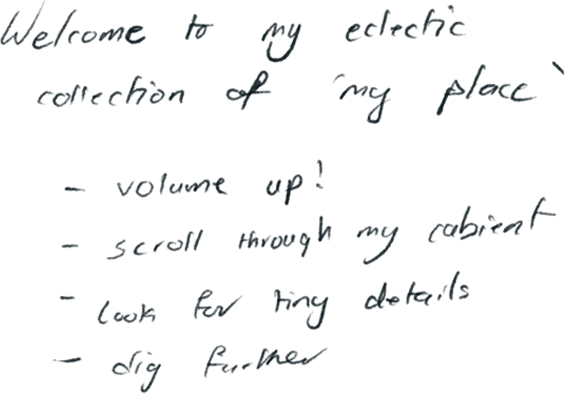 Welcome to my eclectic
collection of 'my place'
- volume up!
- scroll through my cabient
- look for tiny details
- dig further